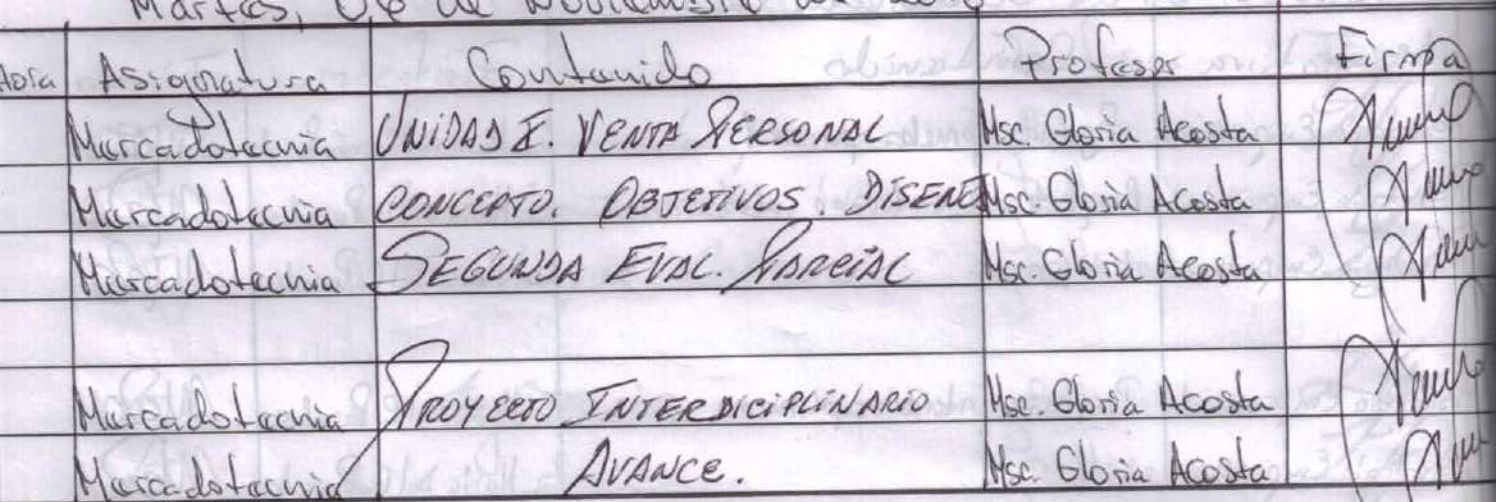 Martes, 06 de Noviembre de
Hora Asignatura Contenido Profesor Firma
Mercadotecnia UNIDAD I. VENTA PERSONAL Msc. Gloria Acosta
Mercadotecnia CONCEPTO. OBJETIVOS. DISEÑO Msc. Gloria Acosta
Mercadotecnia SEGUNDA EVAL. PARCIAL Msc. Gloria Acosta
Mercadotecnia PROYECTO INTERDICIPLINARIO Msc. Gloria Acosta
Mercadotecnia AVANCE. Msc. Gloria Acosta